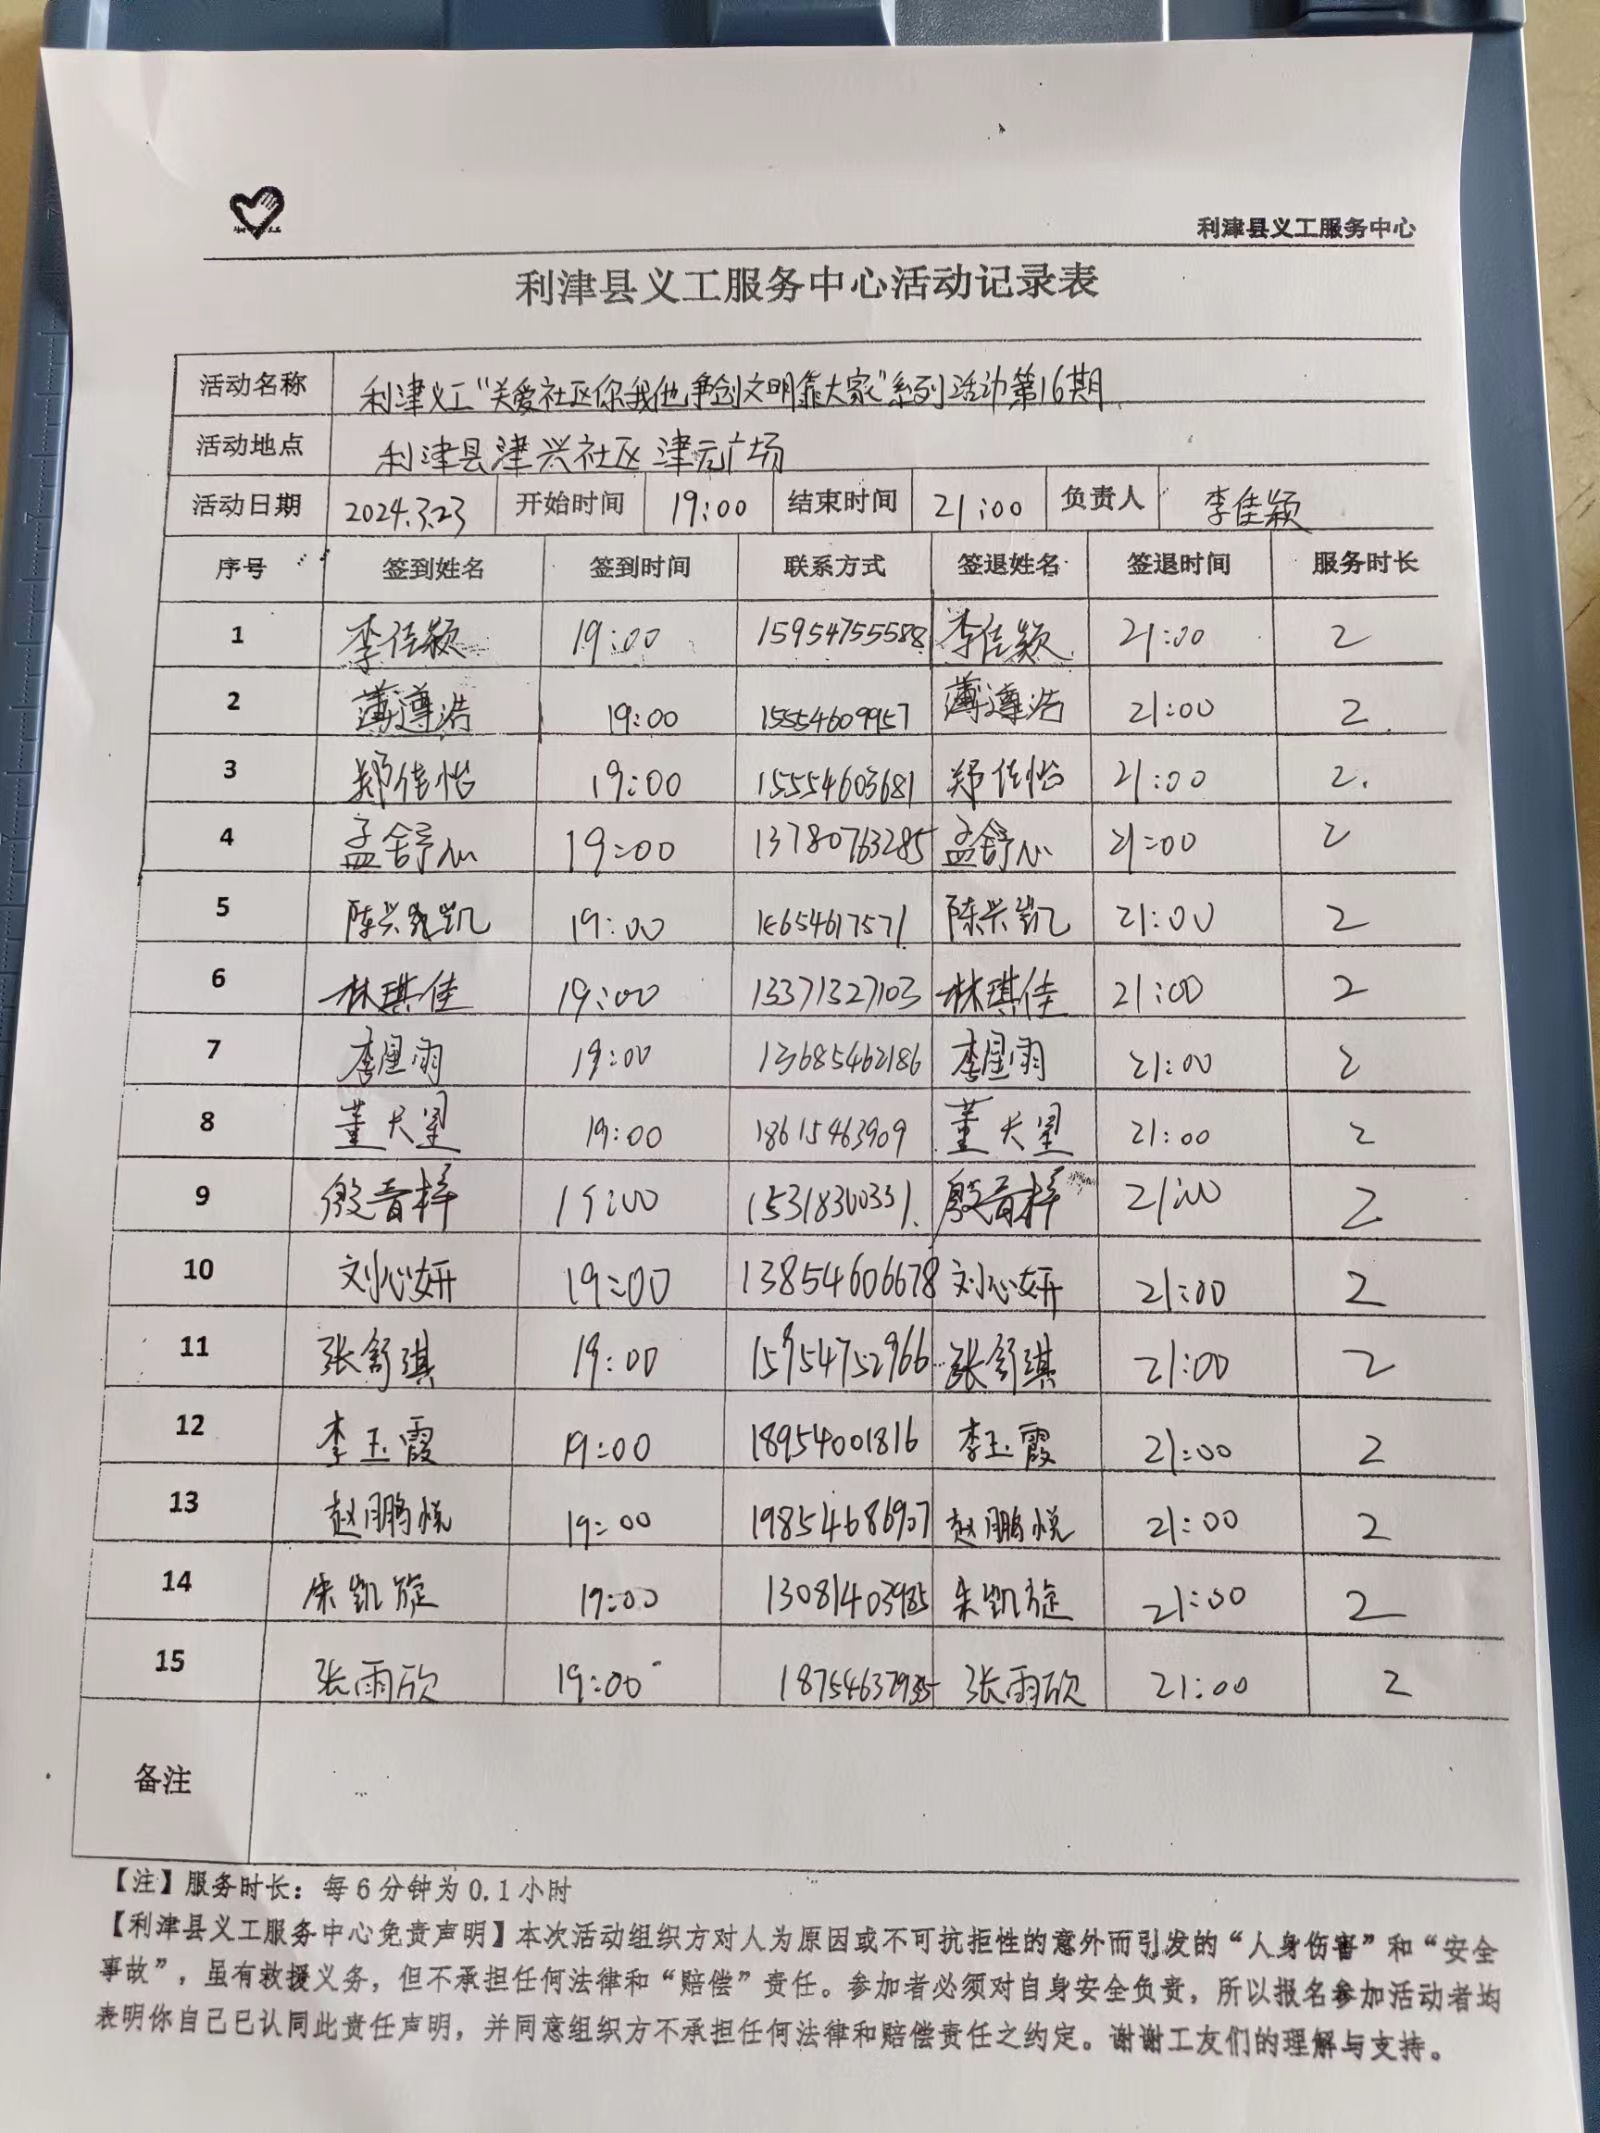 利津县义工服务中心
利津县义工服务中心活动记录表
活动名称 利津义工"关爱社区你我他争创文明靠大家"系列活动第16期
活动地点 利津县津兴社区 津元广场
活动日期 2024.3.23 开始时间 19:00 结束时间 21:00 负责人 李佳颖
序号 签到姓名 签到时间 联系方式 签退姓名 签退时间 服务时长
1 李佳颖 19:00 15954755588 李佳颖 21:00 2
2 薄遵浩 19:00 15554609957 薄遵浩 21:00 2
3 郑佳怡 19:00 15554603681 郑佳怡 21:00 2.
4 孟舒心 19:00 13780763285 孟舒心 21:00 2
5 陈兴凯 19:00 陈兴凯 21:00 2
6 林琪佳 19:00 13371327103 林琪佳 21:00 2
7 李星雨 19:00 13685462186 李星雨 21:00 2
8 董天星 19:00 18615463909 董天星 21:00 2
9 殷音梓 19:00 15318300331 殷音梓 21:00 2
10 刘心妍 19:00 13854606678 刘心妍 21:00 2
11 张舒琪 19:00 15954752966 张舒琪 21:00 2
12 李玉霞 19:00 18954001816 李玉霞 21:00 2
13 赵鹏悦 19:00 19854686907 赵鹏悦 21:00 2
14 朱凯旋 19:00 13081403985 朱凯旋 21:00 2
15 张雨欣 19:00 张雨欣 21:00 2
备注
【注】服务时长：每6分钟为0.1小时
【利津县义工服务中心免责声明】本次活动组织方对人为原因或不可抗拒性的意外而引发的“人身伤害”和“安全
事故”，虽有救援义务，但不承担任何法律和“赔偿”责任。参加者必须对自身安全负责，所以报名参加活动者均
表明你自己已认同此责任声明，并同意组织方不承担任何法律和赔偿责任之约定。谢谢工友们的理解与支持。